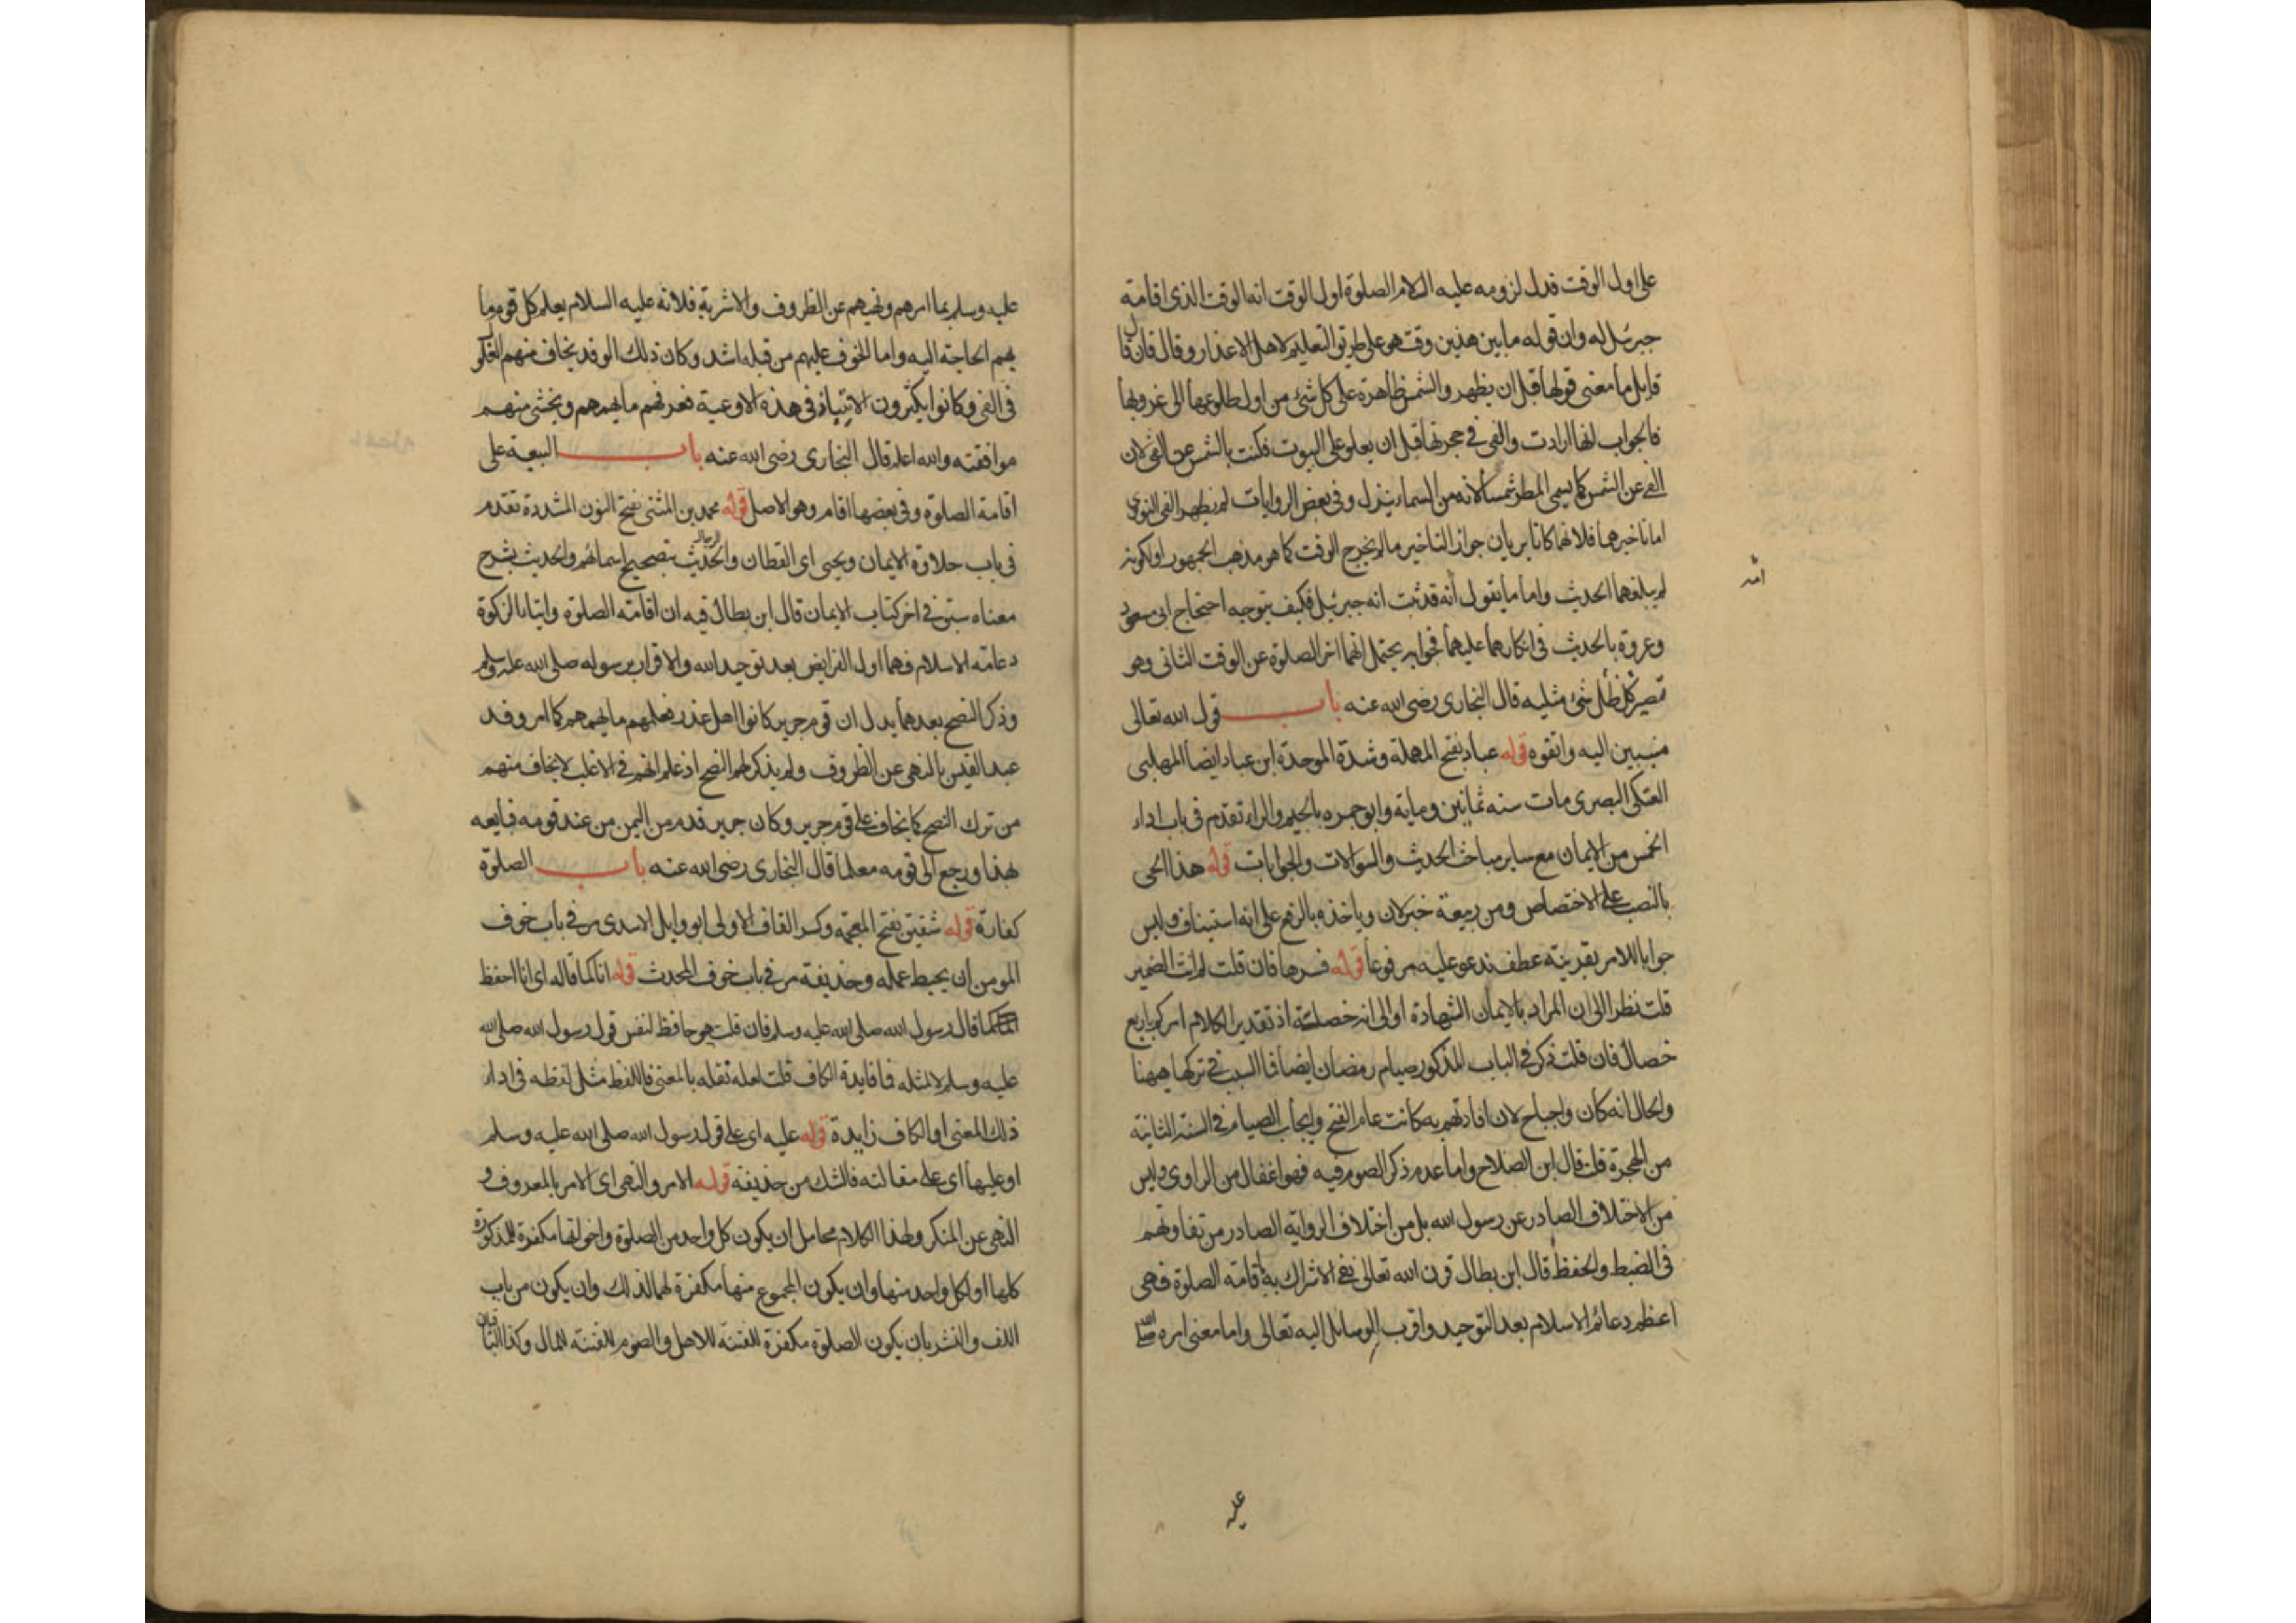 على اول الوقت فدل لزومه عليه السلام الصلوة اول الوقت انه الوقت الذى اقامه
جبرئيل له وان قوله ما بين هذين وقت هو على طريق التعليم لاهل الاعذار وقال فان قال
قايل ما معنى قولها قبل ان يظهر والشمس ظاهرة على كل شئ من اول طلوعها الى غروبها
فالجواب انها ارادت والفى فى حجرتها قبل ان يعلو على البيوت فكنت بالشمس عن الفى لان
الفى عن الشمس كما يسمى المطر شمسا لانه من السماء ينزل وفى بعض الروايات لم يظهر الفى النووى
اما تاخيرهما فلانهما كانا يريان جواز التاخير مالم يخرج الوقت كما هو مذهب الجمهور او لكونه
لم يبلغهما الحديث واما ما يقول انه قد ثبت انه جبرئيل فكيف يتوجه احتجاج ابى مسعود
وعروة بالحديث فى انكارهما عليهما فجوابه يحتمل انهما اخرا الصلوة عن الوقت الثانى وهو
مصير كل ظل شئ مثليه قال البخارى رضى الله عنه باب قول الله تعالى
منيبين اليه واتقوه قوله عباد بفتح المهملة وشدة الموحدة ابن عباد ايضا المهلبى
العتكى البصرى مات سنه ثمانين وماية وابو جمره بالجيم والراء تقدم فى باب اداء
الخمس من الايمان مع ساير مباحث الحديث والسوالات والجوابات قوله هذا الحى
بالنصب على الاختصاص ومن ربيعة خبر لان وياخذه بالرفع على انه استيناف وليس
جوابا للامر بقرينة عطف ندعو عليه مرفوعا قوله فسرها فان قلت لم انث الضمير
قلت نظرا الى ان المراد بالايمان الشهادة او الى انه خصلة اذ تقدير الكلام امركم باربع
خصال فان قلت ذكر فى الباب المذكور صيام رمضان ايضا فا السبب فى تركها ههنا
والحال انه كان واجبا ح لان افادتهم به كانت عام الفتح وايجاب الصيام فى السنة الثانية
من الهجرة قلت قال ابن الصلاح واما عدم ذكر الصوم فيه فهو اغفال من الراوى وليس
من الاختلاف الصادر عن رسول الله بل من اختلاف الرواية الصادر من تفاوتهم
فى الضبط والحفظ قال ابن بطال قرن الله تعالى نفى الاشراك به باقامة الصلوة فهى
اعظم دعائم الاسلام بعد التوحيد واقرب الوسايل اليه تعالى واما معنى امره صلى الله
عليه
عليه وسلم بما امرهم ونهيهم عن الظروف والاشربة فلانه عليه السلام يعلم كل قوم ما
بهم الحاجة اليه واما الخوف عليهم من قبله اشد وكان ذلك الوفد يخاف منهم الغلو
فى الفى وكانوا يكثرون الانتباذ فى هذه الاوعية فعرفهم ما يهمهم ويخشى منهم
موافقته والله اعلم قال البخارى رضى الله عنه باب البيعة على
اقامة الصلوة وفى بعضها اقام وهو الاصل قوله محمد بن المثنى بفتح النون المشددة تقدم
فى باب حلاوة الايمان ويحيى اى القطان والحديث بتصحيح اسمائهم والحديث بشرح
معناه سبق فى اخر كتاب الايمان قال ابن بطال فيه ان اقامة الصلوة وايتاء الزكوة
دعامة الاسلام فهما اول الفرايض بعد توحيد الله والاقرار برسوله صلى الله عليه وسلم
وذكر النصح بعدهما يدل ان قوم جرير كانوا اهل غدر فعلمهم ما يهمهم كما امر وفد
عبد القيس بالنهى عن الظروف ولم يذكر لهم النصح اذ علم انهم فى الاغلب لا يخاف منهم
من ترك النصح كما يخاف على قوم جرير وكان جرير قدم من اليمن من عند قومه فبايعه
بهذا ورجع الى قومه معلما قال البخارى رضى الله عنه باب الصلوة
كفارة قوله شقيق بفتح المعجمه وكسر القاف الاولى ابو وايل الاسدى مر فى باب خوف
المومن ان يحبط عمله وحذيفة مر فى باب خوف المحدث قوله انا كما قاله اى انا احفظ
كما قال رسول الله صلى الله عليه وسلم فان قلت هو حافظ لنفس قول رسول الله صلى الله
عليه وسلم لا لمثله فا فايدة الكاف قلت لعله نقله بالمعنى فاللفظ مثل لفظه فى اداء
ذلك المعنى او الكاف زايدة قوله عليه اى على قول رسول الله صلى الله عليه وسلم
او عليها اى على مقالته فالشك من حذيفة قوله الامر والنهى اى الامر بالمعروف و
النهى عن المنكر ولهذا الكلام محامل ان يكون كل واحد من الصلوة واخواتها مكفرة للمذكورة
كلها او لكل واحد منها وان يكون المجموع منها مكفرة لهما لذلك وان يكون من باب
اللف والنشر بان يكون الصلوة مكفرة للفتنة للاهل والصوم للفتنة للمال وكذا الباقيان